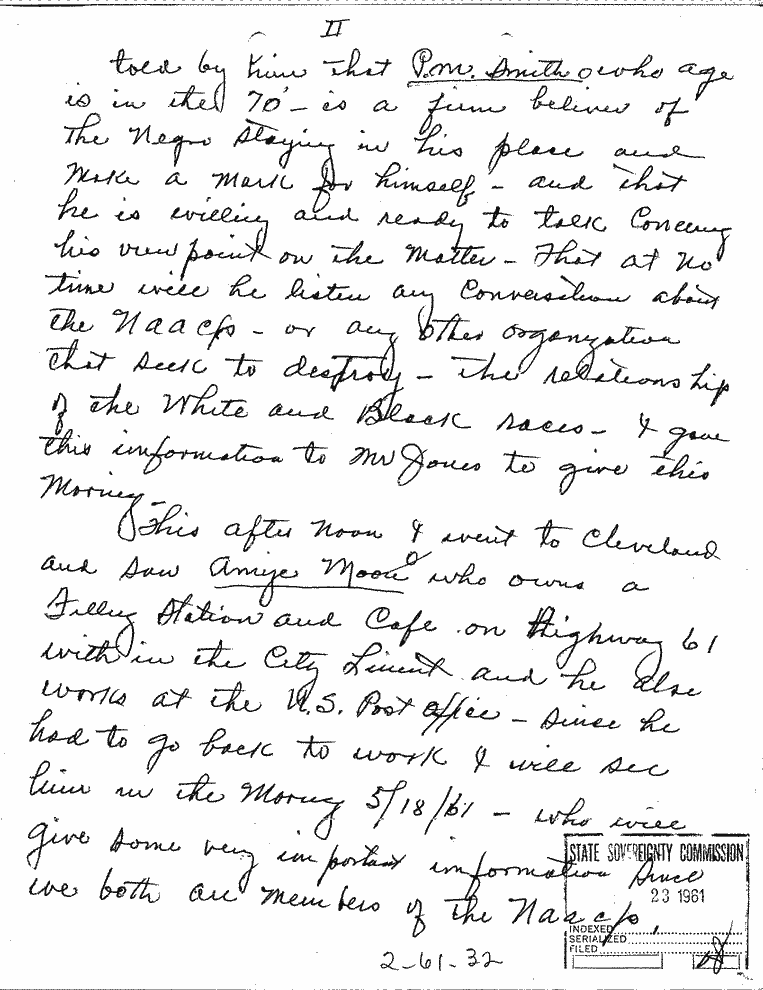 II
told by him that P.M. Smith who age
is in the 70' - is a firm beliver of
the Negro staying in his place and
make a mark for himself - and that
he is willing and ready to talk Concerng
his view point on the Matter - That at no
time will he listen any Conversation about
the NAACP - or any other organization
that seek to destroy - the relationship
of the White and Black races - I gave
this information to Mr Jones to give this
Morning -
This after noon I went to Cleveland
and saw Amzie Moore who owns a
Filling Station and Cafe on Highway 61
with in the City Limit and he also
works at the U.S. Post office - Since he
had to go back to work I will see
him in the Morning 5/18/61 - who will
give some very important information Since
we both are members of the NAACP,
2-61-32
STATE SOVEREIGNTY COMMISSION
23 1961
INDEXED
SERIALIZED
FILED